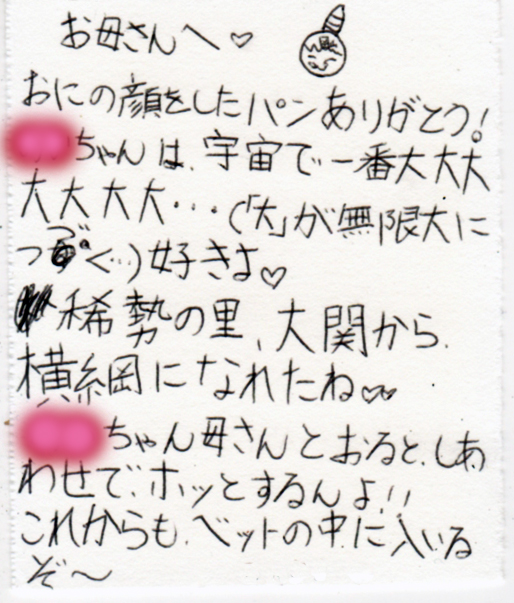 お母さんへ♡
おにの顔をしたパンありがとう!
ちゃんは、宇宙で一番大大大
大大大大・・・(「大」が無限大に
つづく…)好きよ♡
稀勢の里、大関から
横綱になれたね♡♡
ちゃん母さんとおると、しあ
わせで、ホッとするんよ!!
これからも、ベットの中に入いる
ぞ〜